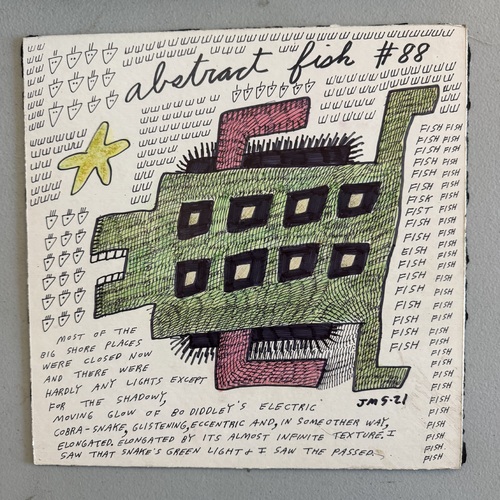 abstract fish #88
FISH FISH
FISH FISH
FISH FISH
FISH FISH
FISH FISH
FISH FISH
FISK FISH
FIST FISH
FISH FISH
FISH FISH
EISH FISH
FISH FISH
FISH FISH
FISH FISH
FISH FISH
FISH FISH
FISH FISH
FISH FISH
FISH
FISH
FISH
FISH
FISH
FISH
FISH
FISH
FISH
FISH
MOST OF THE
BIG SHORE PLACES
WERE CLOSED NOW
AND THERE WERE
HARDLY ANY LIGHTS EXCEPT
FOR THE SHADOWY,
MOVING GLOW OF BO DIDDLEY'S ELECTRIC
COBRA-SNAKE, GLISTENING, ECCENTRIC AND, IN SOME OTHER WAY,
ELONGATED. ELONGATED BY ITS ALMOST INFINITE TEXTURE. I
SAW THAT SNAKE'S GREEN LIGHT & I SAW THE PASSED.
JM 5-21